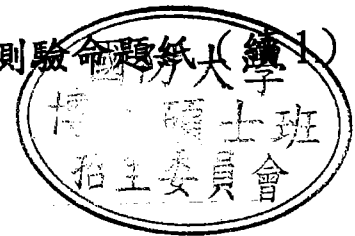 測驗命題紙（續1）
國防大學
博、碩士班
招生委員會